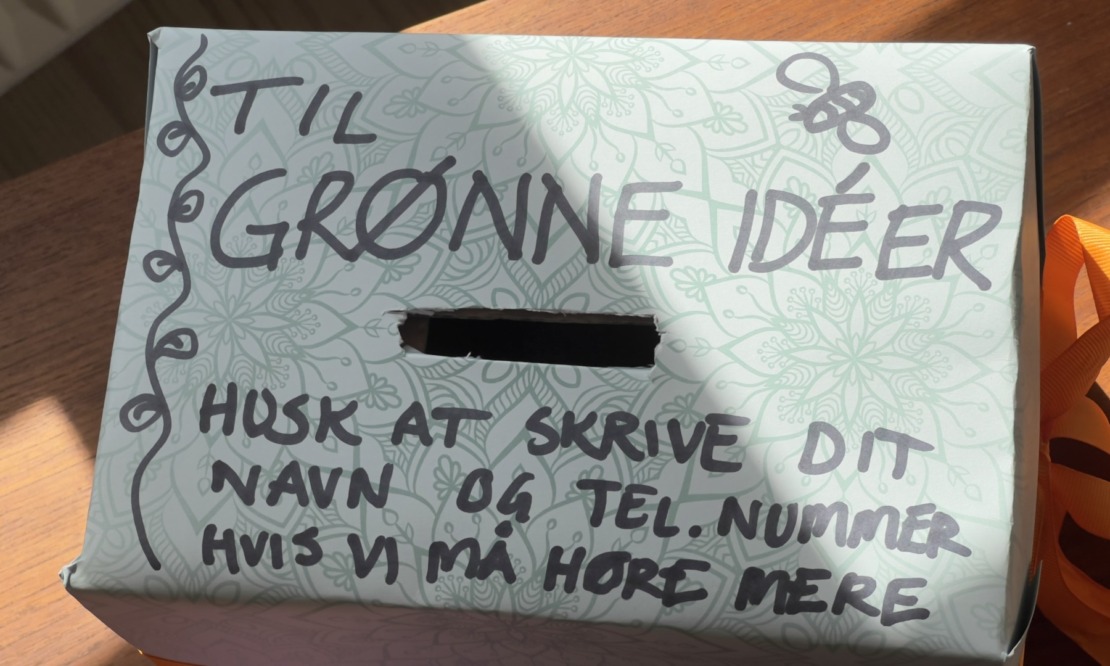 TIL
GRØNNE IDÉER
HUSK AT SKRIVE DIT
NAVN OG TEL. NUMMER
HVIS VI MÅ HØRE MERE